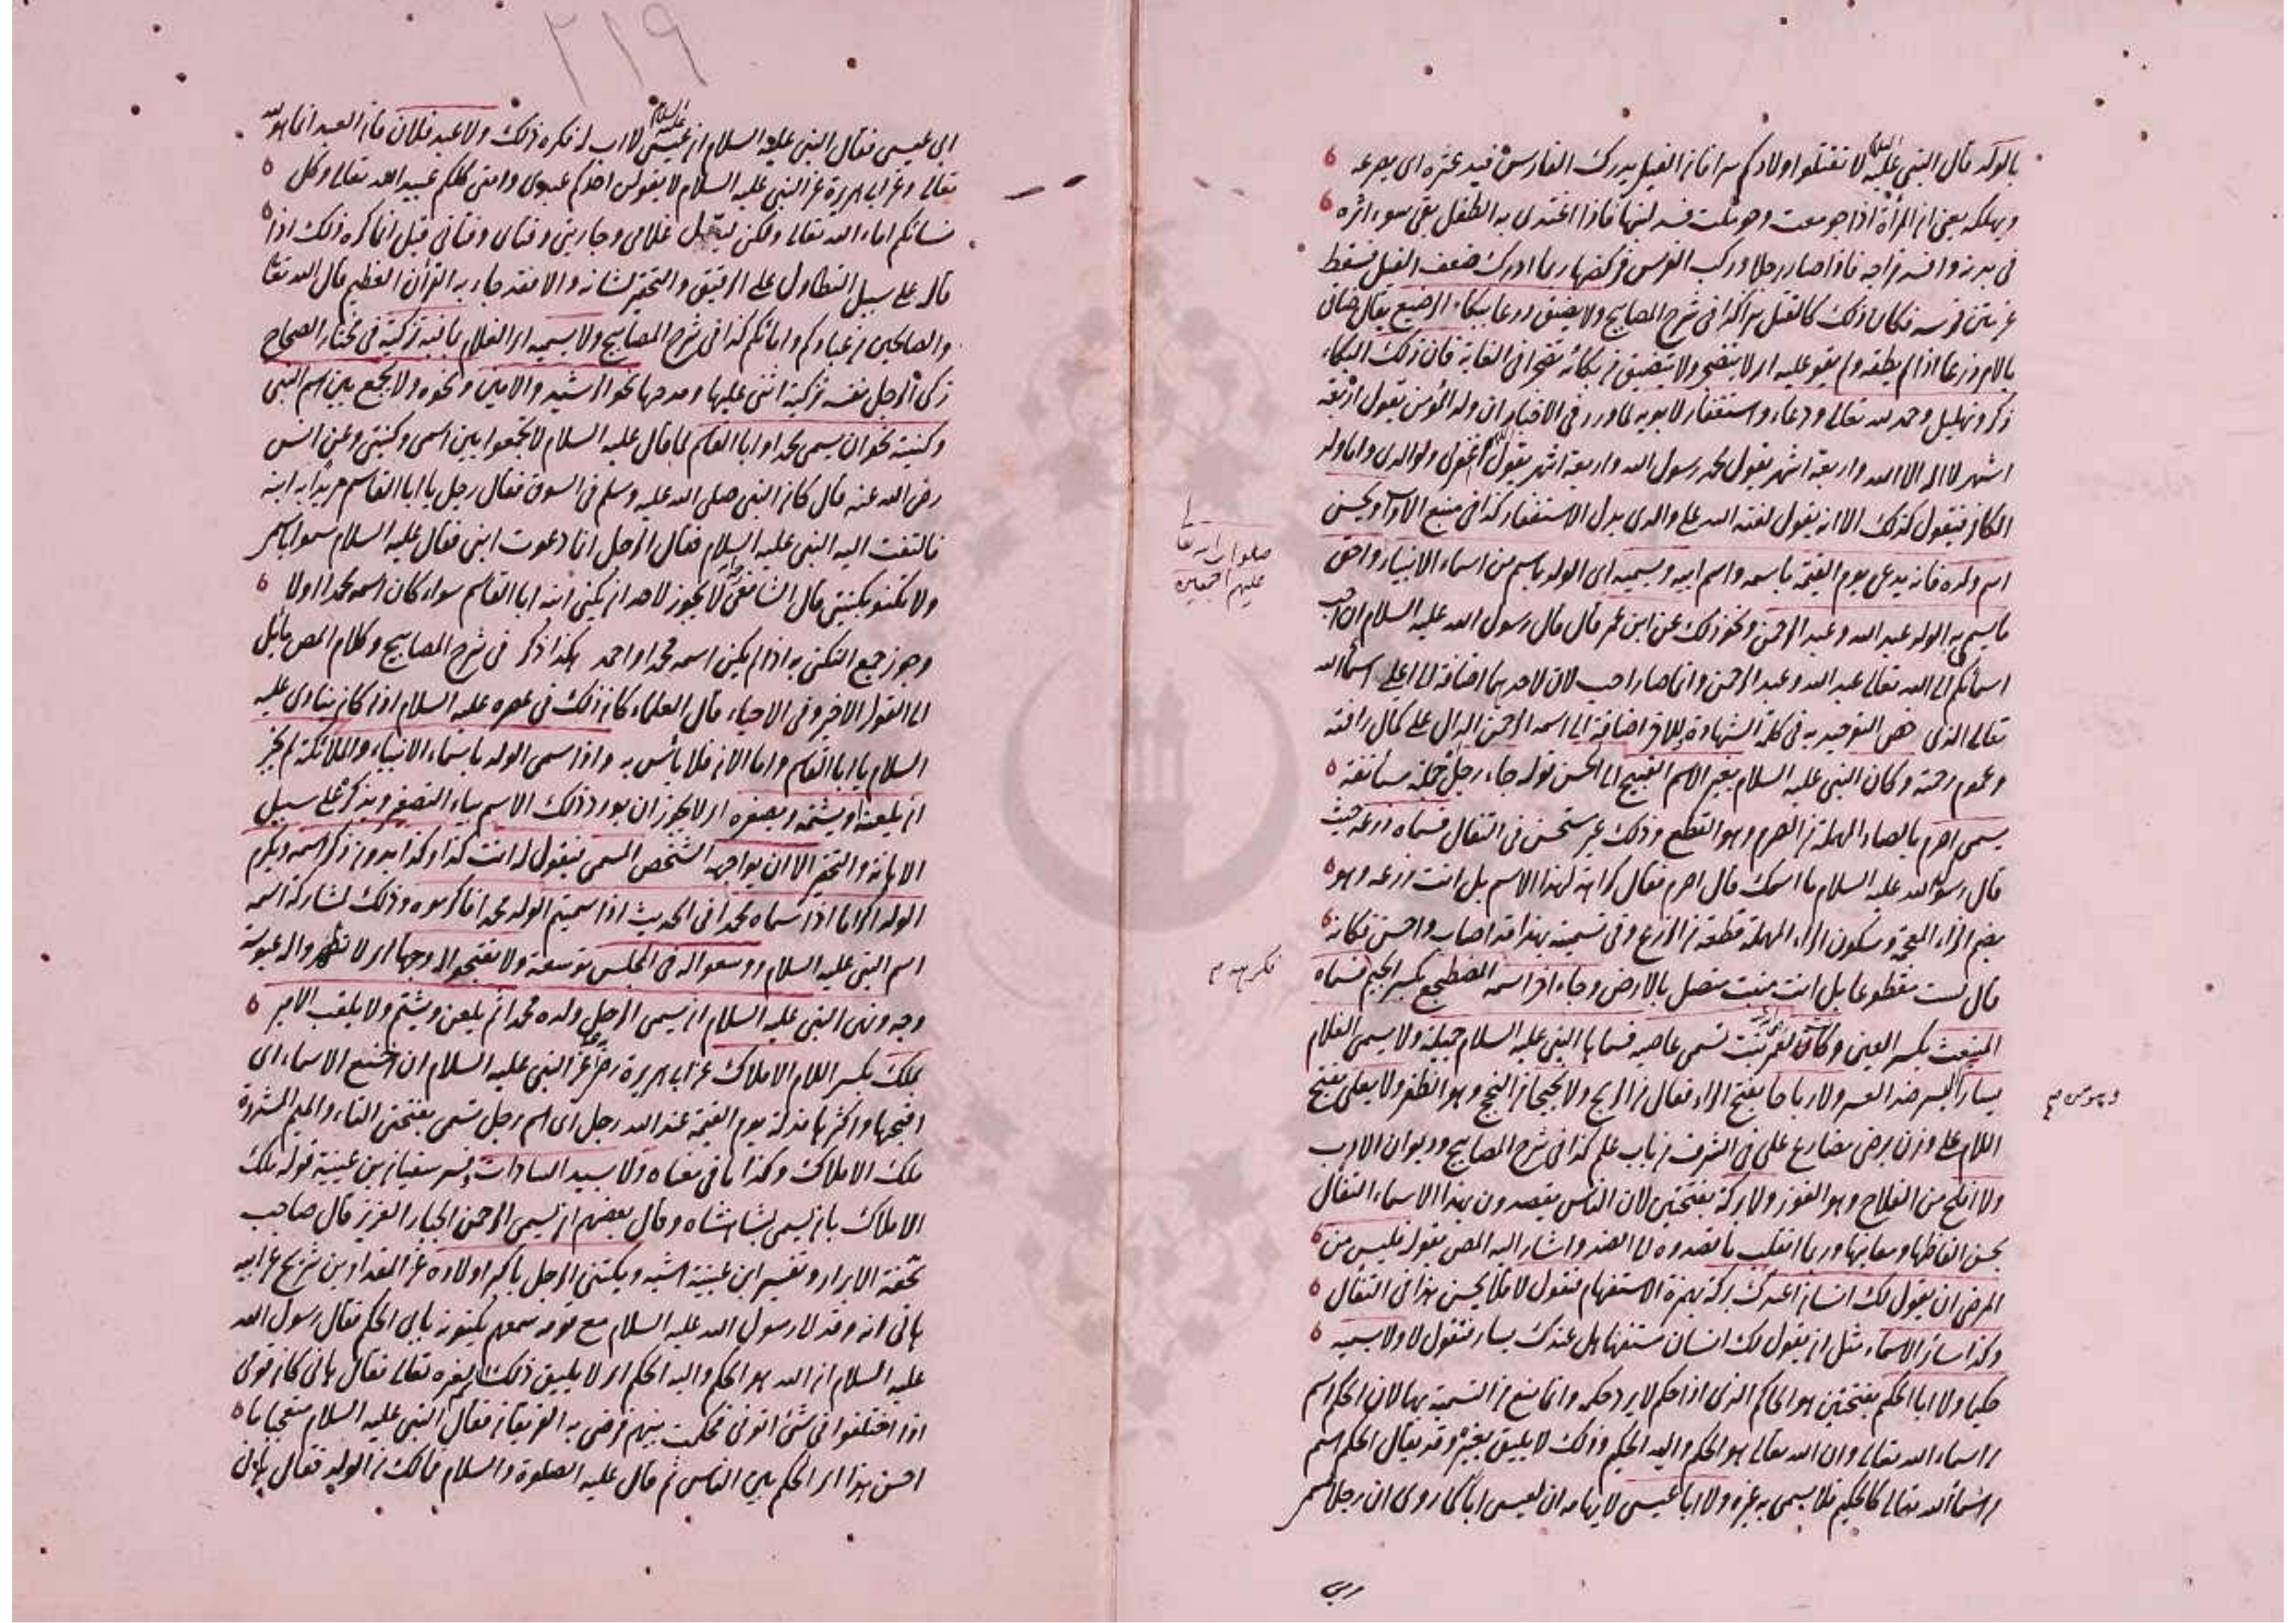 بالولد قال النبي عليه السلام لا تقتلوا اولادكم سرا فان الغيل يدرك الفارس فيدعثره اى يصرعه
ويهلكه يعنى ان المرأة اذا جومعت وحملت فسد لبنها فاذا اغتدى به الطفل بقى سوء اثره
فى بدنه وافسد مزاجه فاذا صار رجلا وركب الفرس فركضها ربما ادرك ضعف الغيل فسقط
عن متن فرسه فكان ذلك كالقتل سرا كذا فى شرح المصابيح ولا يضيق ذرعا ببكاء الرضيع يقال ضاق
بالامر ذرعا اذا لم يطقه ولم يقو عليه اى لا يتضجر ولا يتضيق من بكائه تضجرا فى الغاية فان ذلك البكاء
ذكر وتهليل وحمد لله تعالى ودعاء واستغفار لابويه لما ورد فى الاخبار ان ولد المؤمن يقول اربعة
اشهر لا اله الا الله واربعة اشهر يقول محمد رسول الله واربعة اشهر يقول اللهم اغفر لى ولوالدى واما ولد
الكافر فيقول كذلك الا انه يقول لعنة الله على والدى بدل الاستغفار كذا فى منبع الآداب ويحسن
اسم ولده فانه يدعى يوم القيمة باسمه واسم ابيه ويسميه اى الولد باسم من اسماء الانبياء واحق
صلوات الله تعالى
عليهم اجمعين
ما يسمى به الولد عبد الله وعبد الرحمن ونحو ذلك عن ابن عمر قال قال رسول الله عليه السلام ان احب
اسمائكم الى الله تعالى عبد الله وعبد الرحمن وانما صار احب لان لاحدهما اضافة الى اعلى اسماء الله
تعالى الذى هى التوحيد به فى كلمة الشهادة وللآخر اضافة الى اسمه الرحمن الدال على كمال رأفته
وعموم رحمته وكان النبى عليه السلام يغير الاسم القبيح الى الحسن قوله جاء رجل جملة مستأنفة
يسمى اصرم بالصاد المهملة من الصرم وهو القطع وذلك غير مستحسن فى التفال فسماه زرعة حيث
قال رسول الله عليه السلام ما اسمك قال اصرم فقال كراهة لهذا الاسم بل انت زرعة وهو
بضم الزاء المعجمة وسكون الراء المهملة قطعة من الزرع وفى تسميته بهذا قد اصاب واحسن فكانه
قال لست مقطوعا بل انت منبت متصل بالارض وجاء آخر اسمه المضطجع بكسر الجيم فسماه
المنبعث بكسر العين وكانت لعمر بنت تسمى عاصية فسماها النبى عليه السلام جميلة ولا يسمى الغلام
يسارا اليسر ضد العسر ولا رباحا بفتح الراء فعال من الربح ولا نجيحا من النجح وهو الظفر ولا يعلى بفتح
اللام على وزن يرضى مضارع على فى الشرف من باب علم كذا فى شرح المصابيح وديوان الادب
ولا افلح من الفلاح وهو الفوز ولا بركة بفتحتين لان الناس يقصدون بهذا الاسماء التفال
بحسن الفاظها ومعانيها وربما انقلب ما قصدوه الى الضد واشار اليه المص بقوله فليس من
المرضى ان يقول لك انسان اعندك بركة بهمزة الاستفهام فتقول لا فلا يحسن هذا فى التفال
وكذا سائر الاسماء مثل ان يقول لك انسان مستفهما هل عندك يسار فتقول لا ولا يسميه
حكيما ولا ابا الحكم بفتحتين هو الحاكم الذى اذا حكم لا يرد حكمه وانما منع من التسمية بها لان الحكم اسم
من اسماء الله تعالى وان الله تعالى هو الحكم واليه الحكم وذلك لا يليق بغيره وقد يقال الحكم اسم
من اسماء الله تعالى كالحكيم فلا يسمى به غيره ولا ابا عيسى لايهامه ان لعيسى ابا كما روى ان رجلا سمى
ابى عيسى فقال النبى عليه السلام ان عيسى عليه السلام لا اب له فكره ذلك ولا عبد فلان فان العبد انما هو لله
تعالى وعن ابى هريرة عن النبى عليه السلام لا يقولن احدكم عبدى وامتى كلكم عبيد الله تعالى وكل
نسائكم اماء الله تعالى ولكن ليقل غلامى وجاريتى وفتاى وفتاتى قيل انما كره ذلك اذا
قاله على سبيل التطاول على الرقيق والتحقير لشانه والا فقد جاء به القرآن العظيم قال الله تعالى
والصالحين من عبادكم وامائكم كذا فى شرح المصابيح ولا يسميه اى الغلام بما فيه تزكية فى مختار الصحاح
زكى الرجل نفسه تزكية اثنى عليها ومدحها نحو الرشيد والامين ونحوه ولا يجمع بين اسم النبى
وكنيته نحو ان يسمى محمد او ابا القاسم لما قال عليه السلام لا تجمعوا بين اسمى وكنيتى وعن انس
رضى الله عنه قال كان النبى صلى الله عليه وسلم فى السوق فقال رجل يا ابا القاسم مريدا به ابنه
فالتفت اليه النبى عليه السلام فقال الرجل انما دعوت ابنى فقال عليه السلام سموا باسمى
ولا تكنوا بكنيتى قال الشافعى لا يجوز لاحد ان يكنى ابنه ابا القاسم سواء كان اسمه محمدا اولا
وجوز جمع التكنى به اذا لم يكن اسمه محمدا او احمد هكذا ذكر فى شرح المصابيح وكلام المص مائل
الى القول الاخير وفى الاحياء قال العلماء كان ذلك فى عصره عليه السلام اذ كان ينادى عليه
السلام يا ابا القاسم واما الآن فلا باس به واذا سمى الولد باسماء الانبياء والملائكة لم يجز
ان يلعنه او يشتمه ويصغره اى لا يجوز ان يورد ذلك الاسم بياء التصغير ويذكر على سبيل
الاهانة والتحقير الا ان يواجه الشخص المسمى فيقول له انت كذا وكذا بدون ذكر اسمه ويكرم
الولد اكراما اذا سماه محمدا فى الحديث اذا سميتم الولد محمدا فاكرموه وذلك لشاركة اسمه
اسم النبى عليه السلام ووسعوا له فى المجلس توسعة ولا تقبحوا له وجها اى لا تظهروا له عبوسة
وجه ونهى النبى عليه السلام ان يسمى الرجل ولده محمدا ثم يلعن ويشتم ولا يلقب الامير
بملك بكسر اللام الاملاك عن ابى هريرة رض عن النبى عليه السلام ان اخنع الاسماء اى
اقبحها واكثرها مذلة يوم القيمة عند الله رجل اى اسم رجل تسمى بفتحتى التاء والميم المشددة
ملك الاملاك وكذا ما فى معناه ولا سيد السادات وفسر سفيان بن عيينة قوله ملك
الاملاك بان يسمى بشاهنشاه وقال بعضهم ان يسمى الرحمن الجبار العزيز قال صاحب
تحفة الابرار وتفسير ابن عيينة اشبه ويكتنى الرجل باكبر اولاده عن المقداد بن شريح عن ابيه
هانى انه وفد لا رسول الله عليه السلام مع قومه سمعهم يكنونه بابى الحكم فقال رسول الله
عليه السلام ان الله هو الحكم واليه الحكم اى لا يليق ذلك بغيره تعالى فقال هانى كان قومى
اذا اختلفوا فى شئ اتونى فحكمت بينهم فرضى به الفريقان فقال النبى عليه السلام متعجبا ما
احسن هذا اى الحكم بين الناس ثم قال عليه الصلوة والسلام فما لك من الولد فقال هانى